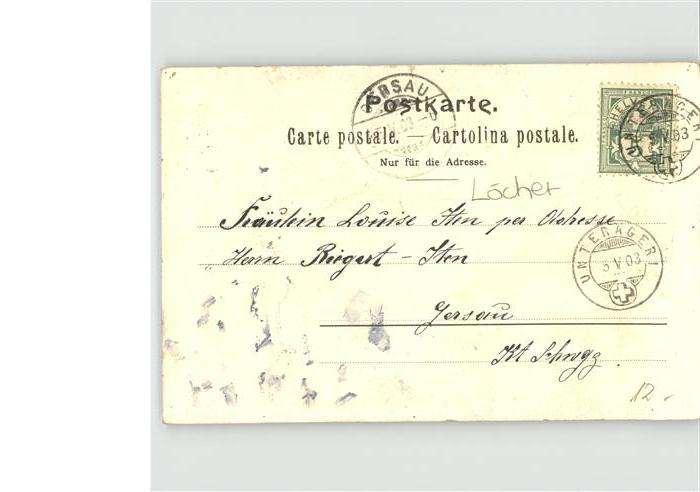 Postkarte.
Carte postale. — Cartolina postale.
Nur für die Adresse.
GERSAU
HELV
FRANCO
UNTERÄGERI
5 V 03
Löcher
Fräulein Louise Iten per Adresse
Herrn Riegert - Iten
UNTERÄGERI
5 V 03
Gersau
Kt Schwyz
12.